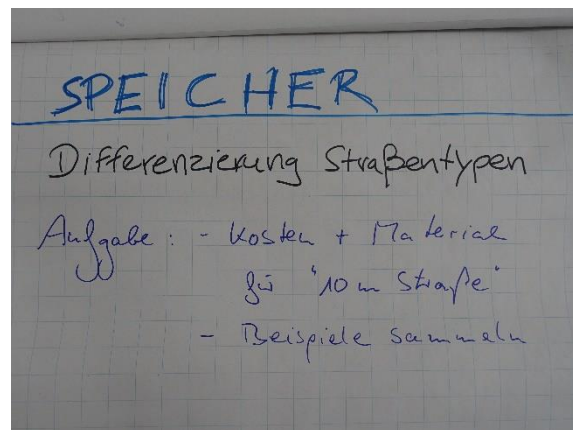 SPEICHER
Differenzierung Straßentypen
Aufgabe: - Kosten + Material
für "10 m Straße"
- Beispiele sammeln